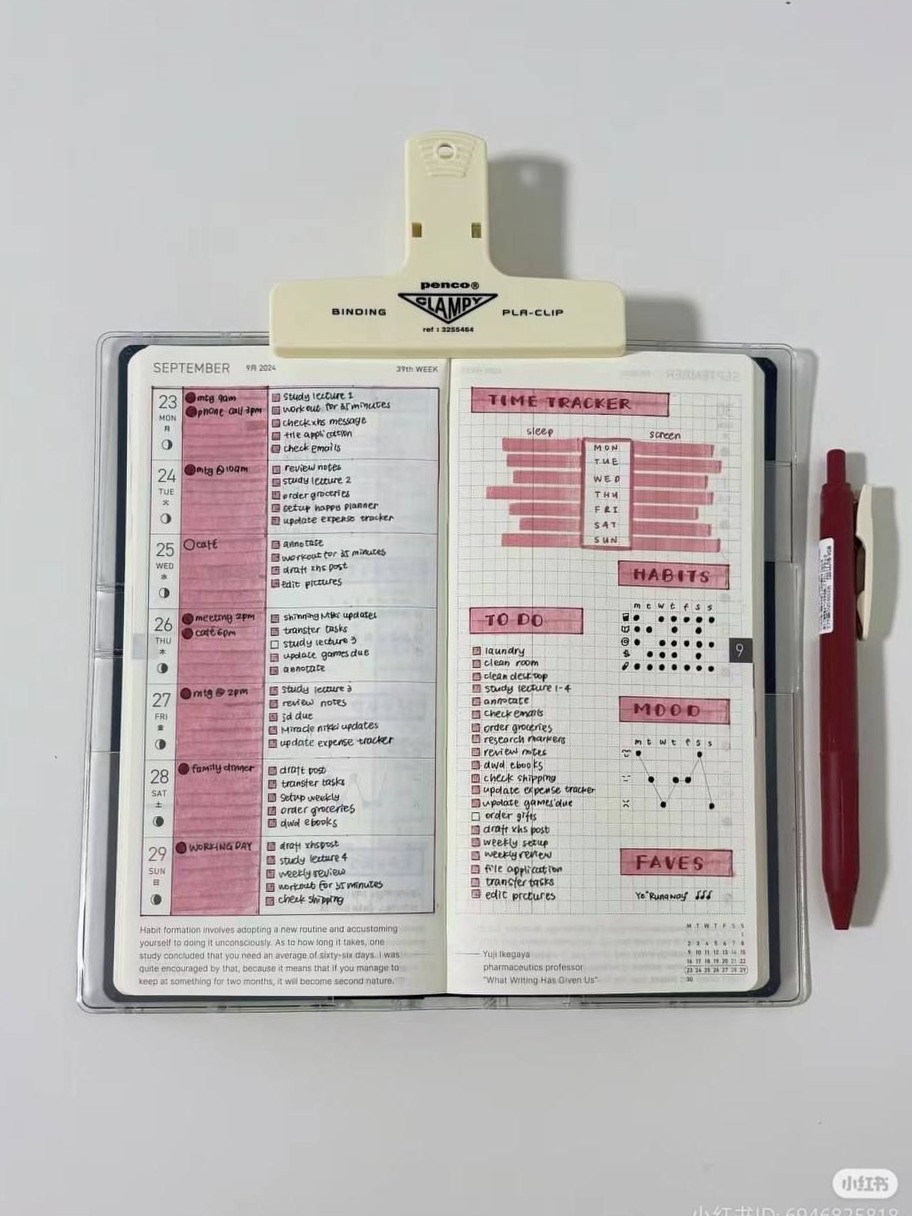 penco®
CLAMPY
BINDING
PLA-CLIP
ref : 3255464
SEPTEMBER 9月 2024 39th WEEK
23
MON
月
mtg 9am
phone call 3pm
study lecture 1
workout for 35 minutes
check xhs message
file application
check emails
24
TUE
火
mtg @ 10am
review notes
study lecture 2
order groceries
setup happy planner
update expense tracker
25
WED
水
café
annotate
workout for 35 minutes
draft xhs post
edit pictures
26
THU
木
meeting 2pm
café 6pm
shinning Nikki updates
transfer tasks
study lecture 3
update games due
annotate
27
FRI
金
mtg @ 2pm
study lecture 3
review notes
jd due
Miracle nikki updates
update expense tracker
28
SAT
土
family dinner
draft post
transfer tasks
setup weekly
order groceries
dwd ebooks
29
SUN
日
WORKING DAY
draft xhs post
study lecture 4
weekly review
workout for 35 minutes
check shipping
Habit formation involves adopting a new routine and accustoming
yourself to doing it unconsciously. As to how long it takes, one
study concluded that you need an average of sixty-six days. I was
quite encouraged by that, because it means that if you manage to
keep at something for two months, it will become second nature.
TIME TRACKER
sleep
screen
MON
TUE
WED
THU
FRI
SAT
SUN
HABITS
m t w t f s s
TO DO
laundry
clean room
clean desktop
study lecture 1-4
annotate
check emails
order groceries
research markers
review notes
dwd ebooks
check shipping
update expense tracker
update games due
order gifts
draft xhs post
weekly setup
weekly review
file application
transfer tasks
edit pictures
9
MOOD
m t w t f s s
FAVES
Ye "Runaway" ♪♪♪
M T W T F S S
1
2 3 4 5 6 7 8
9 10 11 12 13 14 15
16 17 18 19 20 21 22
23 24 25 26 27 28 29
30
Yuji Ikegaya
pharmaceutics professor
"What Writing Has Given Us"
小红书
小红书ID: 6946825818